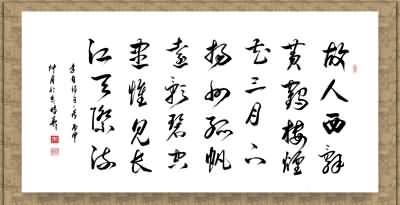 故人西辭
黄鶴樓煙
花三月下
揚州孤帆
遠影碧空
盡惟見長
江天際流
李白詩